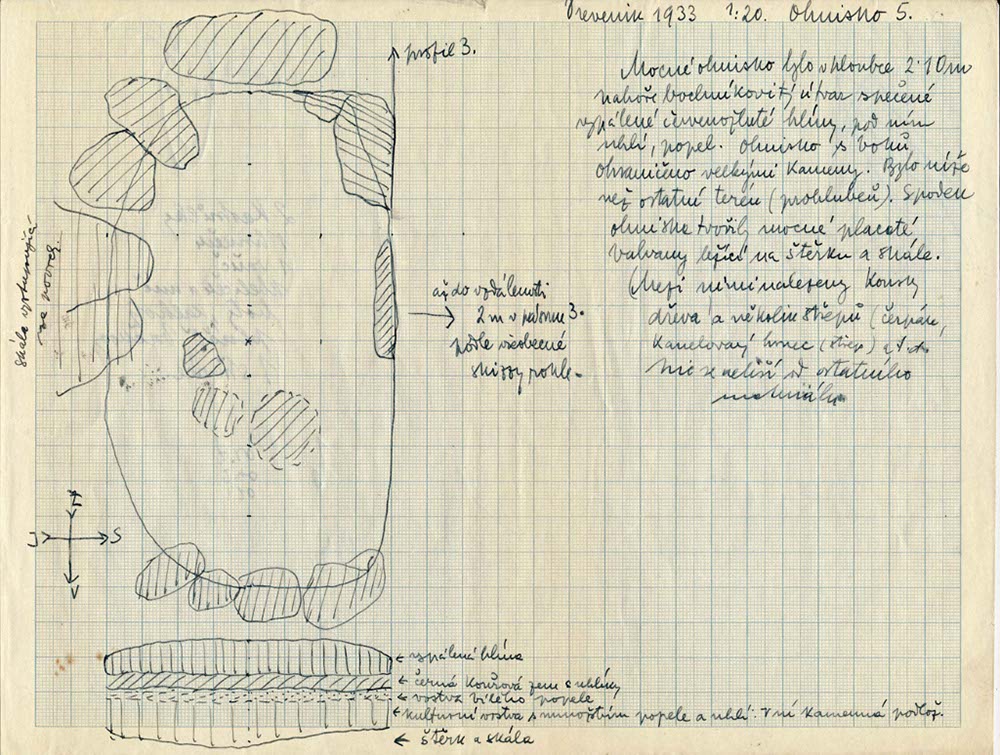 Dreveník 1933 1:20. Ohnisko 5.
profil 3.
Mocné ohnisko bylo v hloubce 2·10m
nahoře bochníkovitý útvar spečené
vypálené červenožluté hlíny, pod ním
uhlí, popel. Ohnisko s boků
ohraničeno velkými kameny. Bylo níže
než ostatní terén (prohlubeň). Spodek
ohniska tvořily mocné placaté
valvany ležící na štěrku a skále.
(Mezi nimi nalezeny kousky
dřeva a několik střepů (čerpák,
kanelovaný hrnec (střep) a
Nic se neliší od ostatního
materiálu
skála vystupující
na povrch.
až do vzdálenosti
2 m v pásmu 3.
podle všeobecné
skizzy
J S
V
vypálená hlína
černá kouřová zem s uhlíky
vrstva bílého popele
kulturní vrstva s množstvím popele a uhlí. V ní kamenná podlož.
štěrk a skála